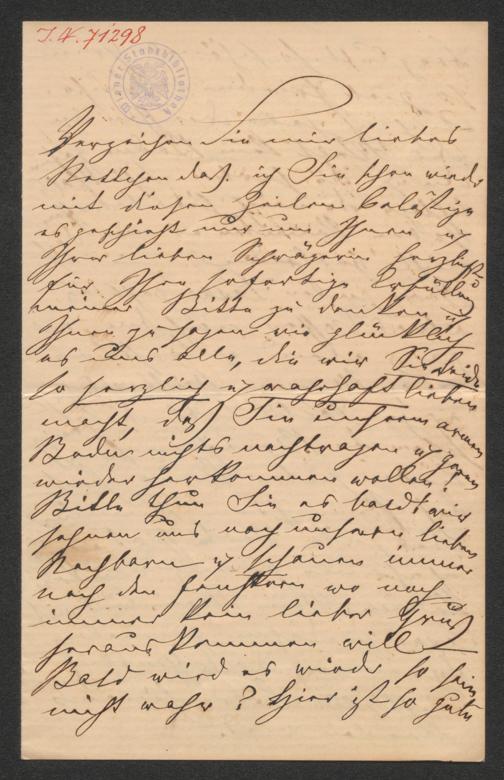 I.N. 71298
Wiener Stadtbibliothek
Verzeihen Sie mir liebes
Nettchen daß ich Sie schon wieder
mit diesen Zeilen belästige
es geschieht nur um Ihnen u
Ihrer lieben Schwägerin herzlichst
für Ihre sofortige Erfüllung
meiner Bitte zu danken u
Ihnen zu sagen wie glücklich
es uns alle, die wir Sie beide
so herzlich u wahrhaft lieben
macht, daß Sie unserem armen
Baden nichts nachtragen u gern
wieder herkommen wollen.
Bitte thun Sie es bald wir
sehnen uns nach unseren lieben
Nachbarn u schauen immer
nach den Fenstern wo noch
immer kein lieber Gruß
heraus kommen will
Bald wird es wieder so sein
nicht wahr? Hier ist so gute